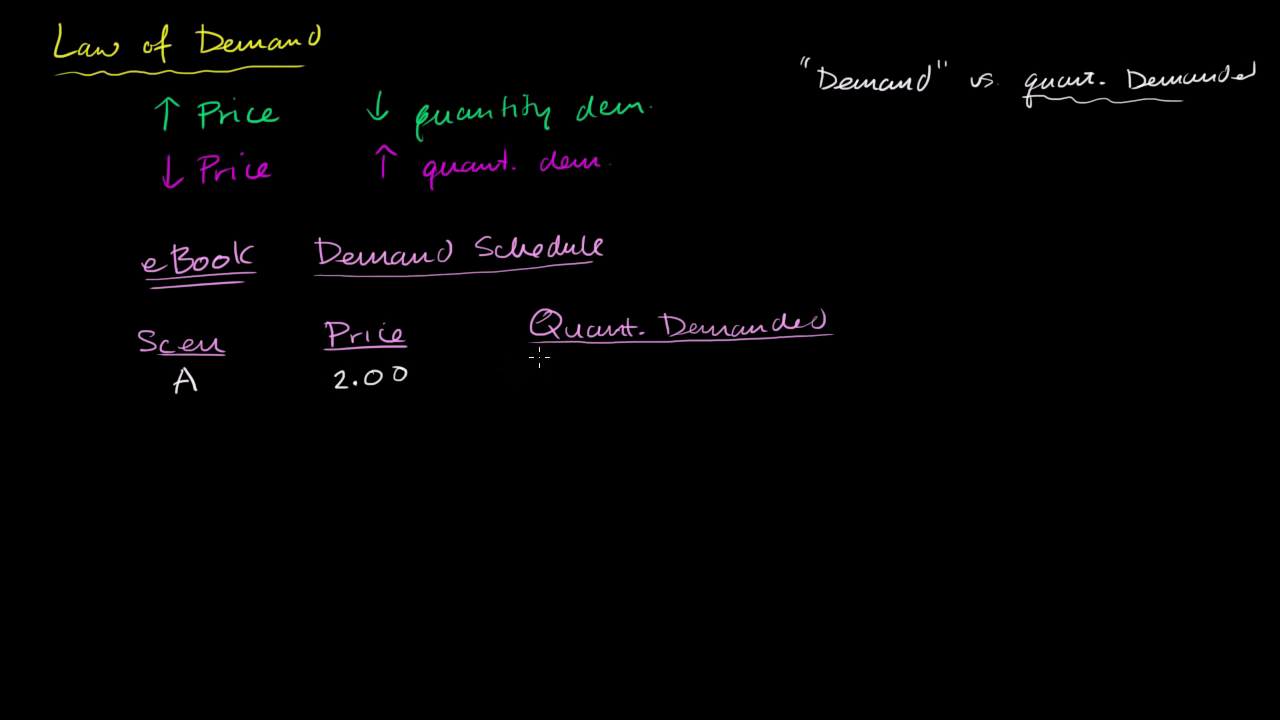 Law of Demand
"Demand" vs. quant. Demanded
↑ Price ↓ quantity dem.
↓ Price ↑ quant. dem.
eBook Demand Schedule
Scen Price Quant. Demanded
A 2.00